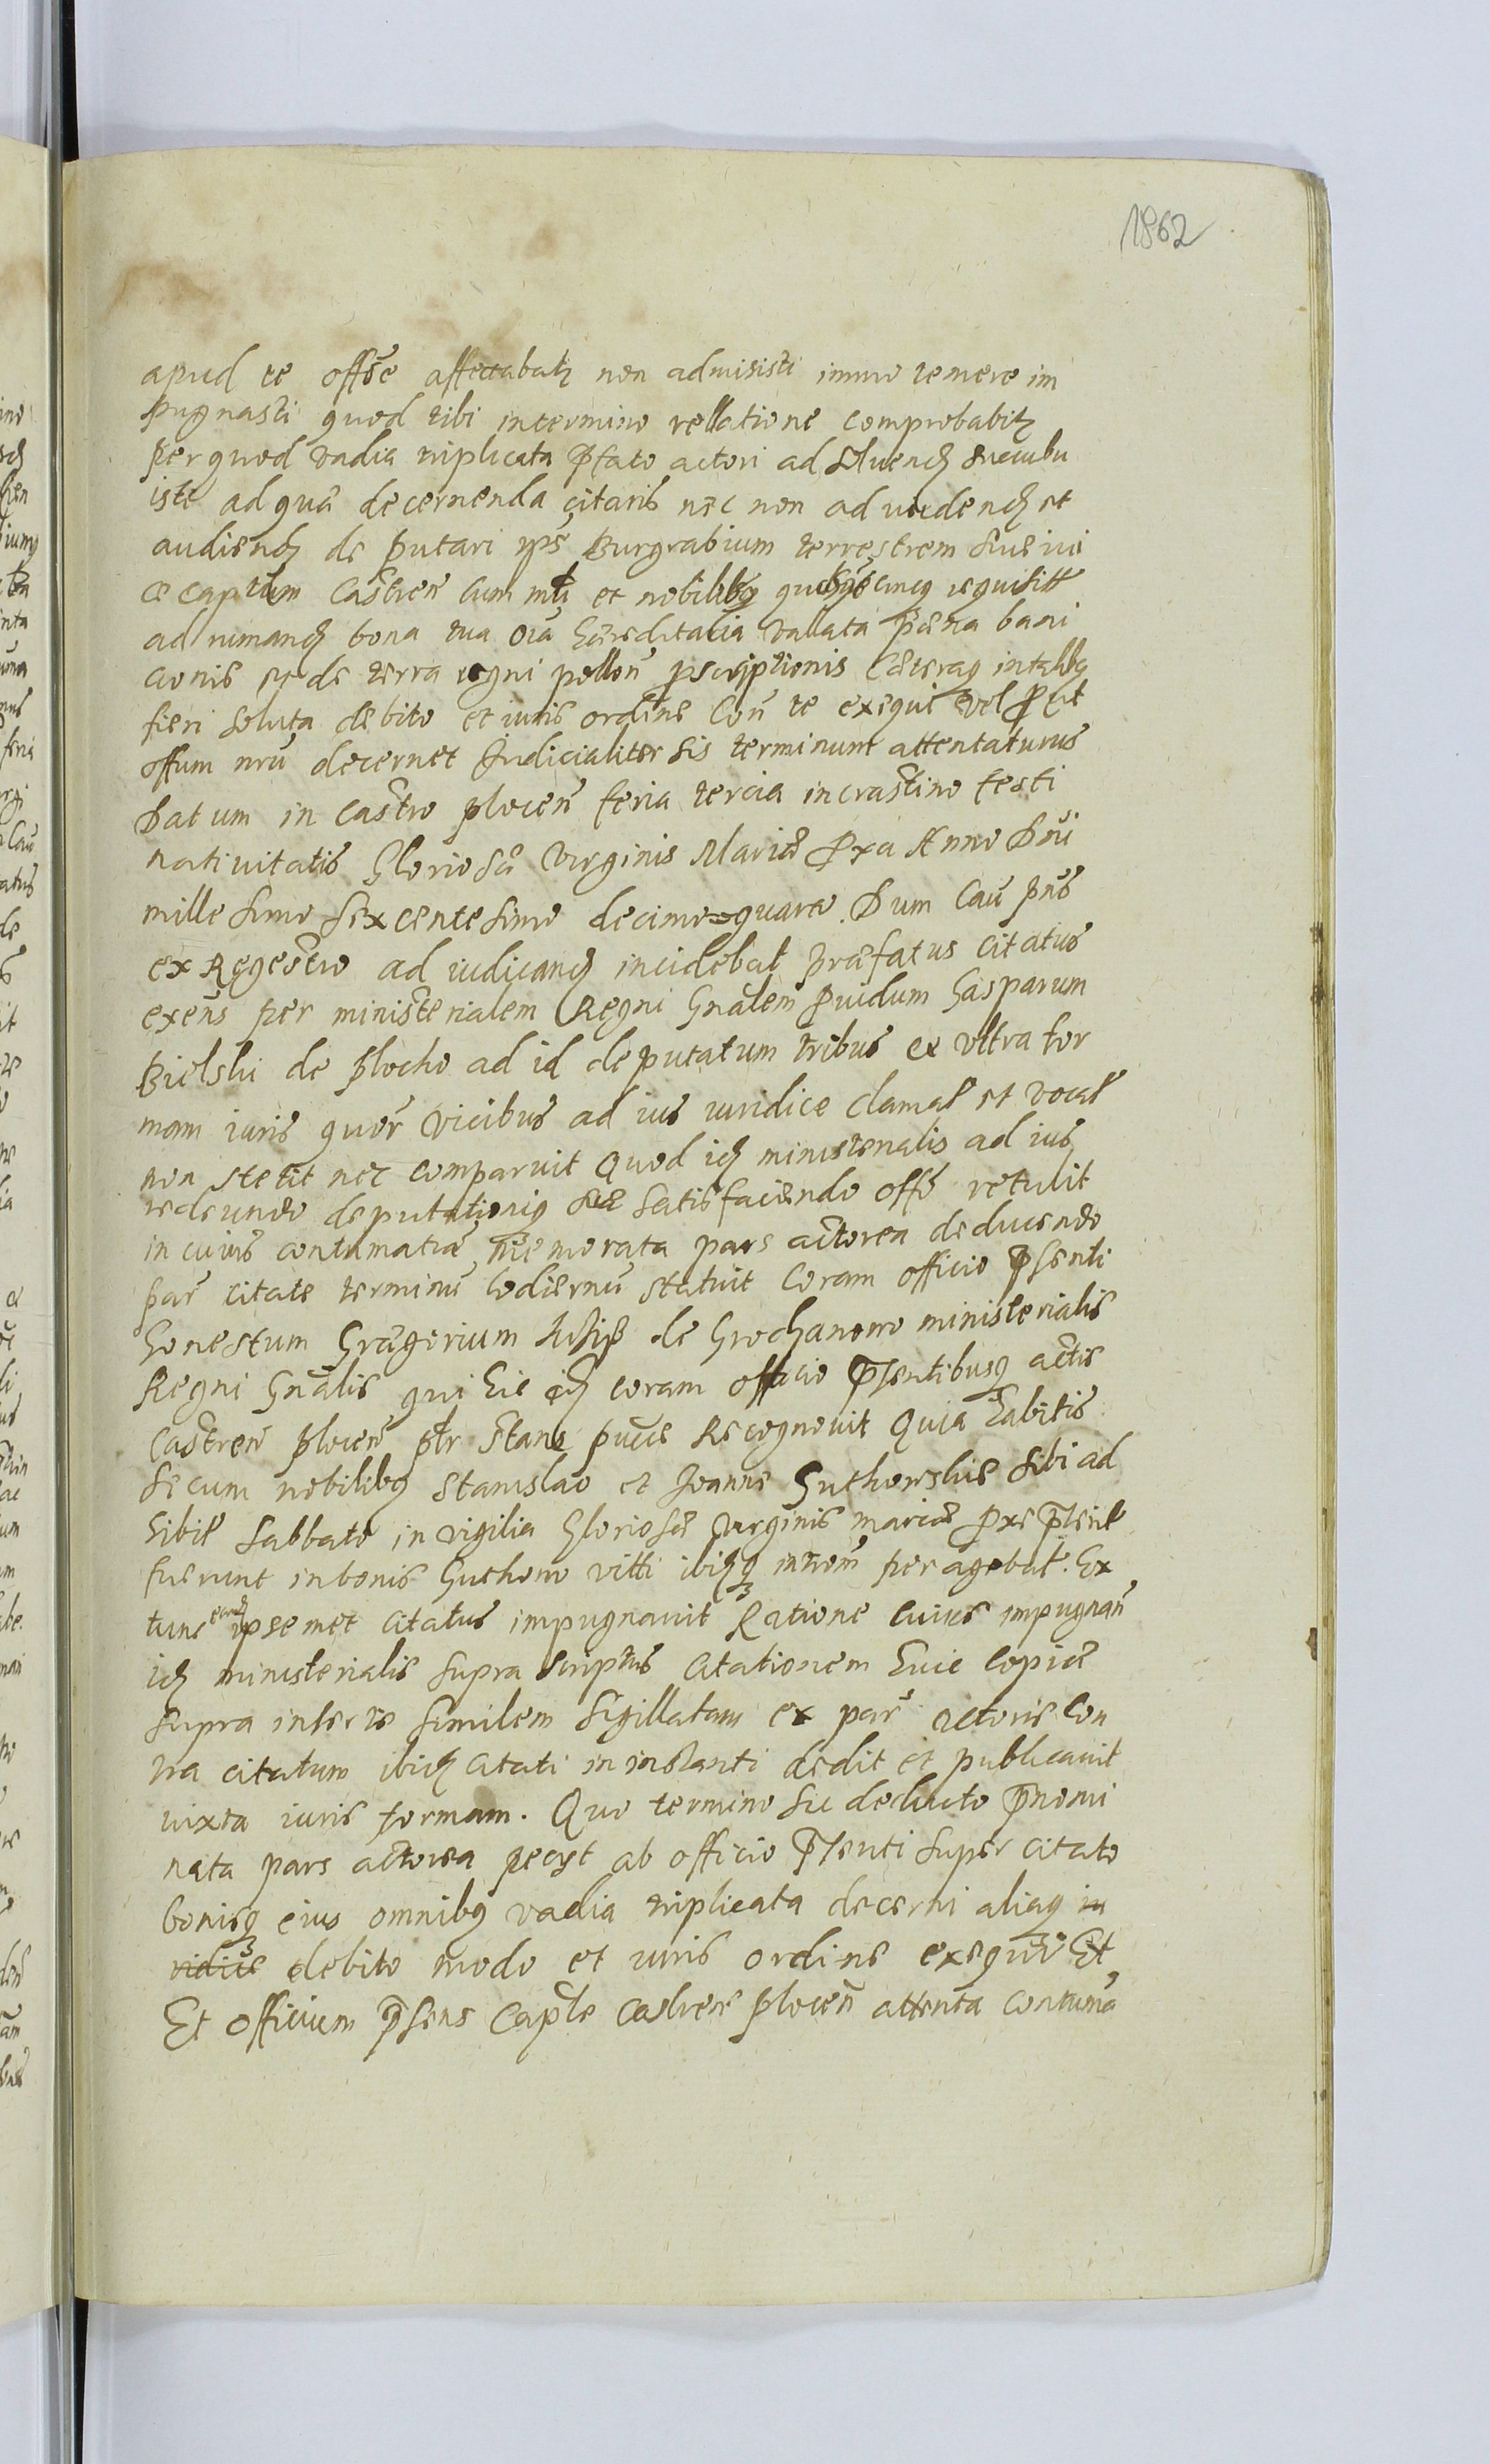 1862
apud te offõe affectabat non admisisti immo temere im
pugnasti quod tibi in termino rellatione comprobabit
per quod vadia triplicata pfato actori ad soluend succubu
isti ad quã decernenda citaris nec non ad uidend et
audiend de putari Burgrabium terrestrem siue ui
ce captum Castren cum et nobilibq
ad rumand bona tua oia hæreditalia vallata pæna bani
cionis et de terra regni pollon pscriptionis Cæteraq in talibq
fieri soluta debito et iuris ordine Con te exequi vel put
offum nrũ decernet Judicialiter sis terminum attentaturus
Datum in Castro plocen feria tercia in crastino festi
nativitatis Gloriosæ Virginis Mariæ pxa Anno Dni
millesimo sexcentesimo decimo quarto. Dum Cau pns
ex Regestro ad iudicand incidebat præfatus citatus
exens per ministerialem Regni Gnalem puidum Gasparum
Bielski de plocko ad id deputatum tribus et vltra for
mam iuris quer vicibus ad ius iuridice clamat et vocat
non stetit nec comparuit Quod id ministerialis ad ius
redeundo deputationiq suæ satisfaciendo offo retulit
in cuius contumatiã memorata pars actorea deducendo
par citate terminũ hodiernũ statuit coram officio psenti
honestum Grægorium de Grochanowo ministerialis
Regni Gnalis qui hic id coram officio psentibusq actis
Castren plocen ptr stans pucce Recognouit Quia habitis
secum nobilibq Stanislao et Joanne Guthowskie sibi ad
hibit Sabbato in vigilia Gloriosæ Virginis mariæ pxe ptent
fuerunt in bonis Guthowo vitti ibidq introm peragebat. Ex
tunc eand ipsemet citatus impugnauit Ratione cuius impugnañ
id ministerialis supra scriptus Citationem huic copiæ
supra insertæ similem Sigillatam ex par actoris Con
tra citatum ibid citati in instanti dedit et publicauit
iuxta iuris formam. Quo termino sic deducto pnomi
nata pars actorea pecyt ab officio psenti super citato
bonisq eius omnibq vadia triplicata decerni aliaq iu
ridice debito modo et iuris ordine exequi Et
Et officium psens Caple castren plocen attenta contuma